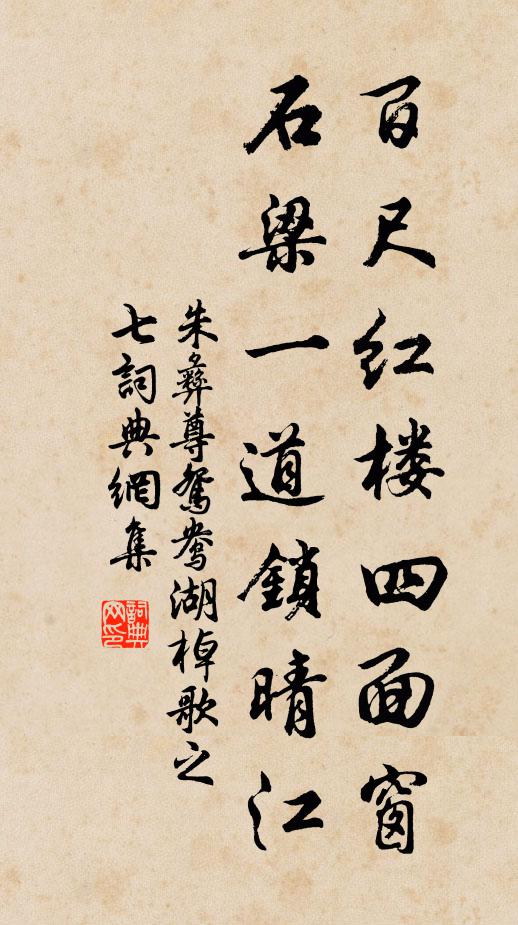 百尺红楼四面窗
石梁一道鎖晴江
朱彝尊鴛鴦湖棹歌之
七詞典網集
詞典网印